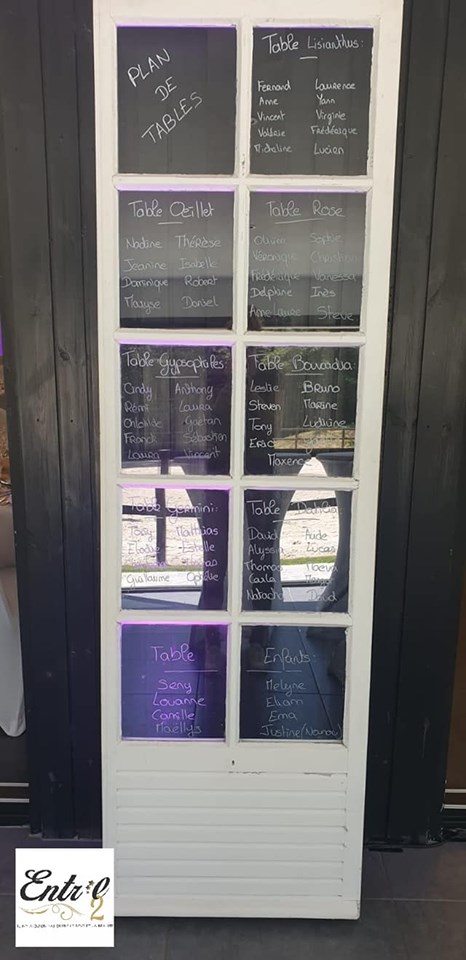 PLAN
DE
TABLES
Table Lisianthus:
Fernand Laurence
Anne Yann
Vincent Virginie
Valérie Frédérique
Micheline Lucien
Table Oeillet
Nadine Thérèse
Jeanine Isabelle
Dominique Robert
Maryse Daniel
Table Rose
Olivier Sophie
Véronique Christian
Frédérique Vanessa
Delphine Inès
Anne Laure Steve
Table Gypsophiles:
Cindy Anthony
Rémi Laura
Chlohilde Gaëtan
Franck Sébastien
Lauren Vincent
Table Bouvardia:
Leslie Bruno
Steven Marine
Tony Ludivine
Eric
Maxence
Table Germini:
Tony Matthias
Elodie Estelle
Guillaume Ophélie
Table Dahlia
David Aude
Alyssia Lucas
Thomas Maeva
Carla
Natacha David
Table
Seny
Louanne
Camille
Maëllys
Enfants:
Melyne
Eham
Ema
Justine (Nanou)
Entr'O
2